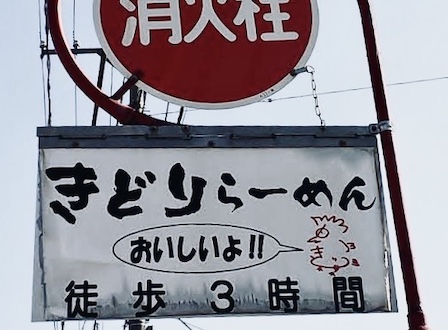 消火栓
きどりらーめん
おいしいよ!!
徒歩3時間